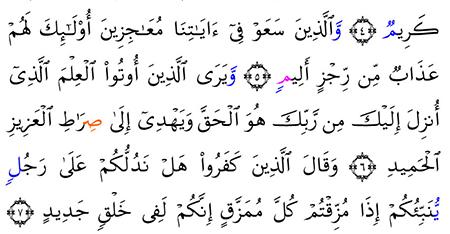 كَرِيمٌ ﴿٤﴾ وَٱلَّذِينَ سَعَوْ فِىٓ ءَايَـٰتِنَا مُعَـٰجِزِينَ أُو۟لَـٰٓئِكَ لَهُمْ
عَذَابٌ مِّن رِّجْزٍ أَلِيمٍ ﴿٥﴾ وَيَرَى ٱلَّذِينَ أُوتُوا۟ ٱلْعِلْمَ ٱلَّذِىٓ
أُنزِلَ إِلَيْكَ مِن رَّبِّكَ هُوَ ٱلْحَقَّ وَيَهْدِىٓ إِلَىٰ صِرَٰطِ ٱلْعَزِيزِ
ٱلْحَمِيدِ ﴿٦﴾ وَقَالَ ٱلَّذِينَ كَفَرُوا۟ هَلْ نَدُلُّكُمْ عَلَىٰ رَجُلٍ
يُنَبِّئُكُمْ إِذَا مُزِّقْتُمْ كُلَّ مُمَزَّقٍ إِنَّكُمْ لَفِى خَلْقٍ جَدِيدٍ ﴿٧﴾